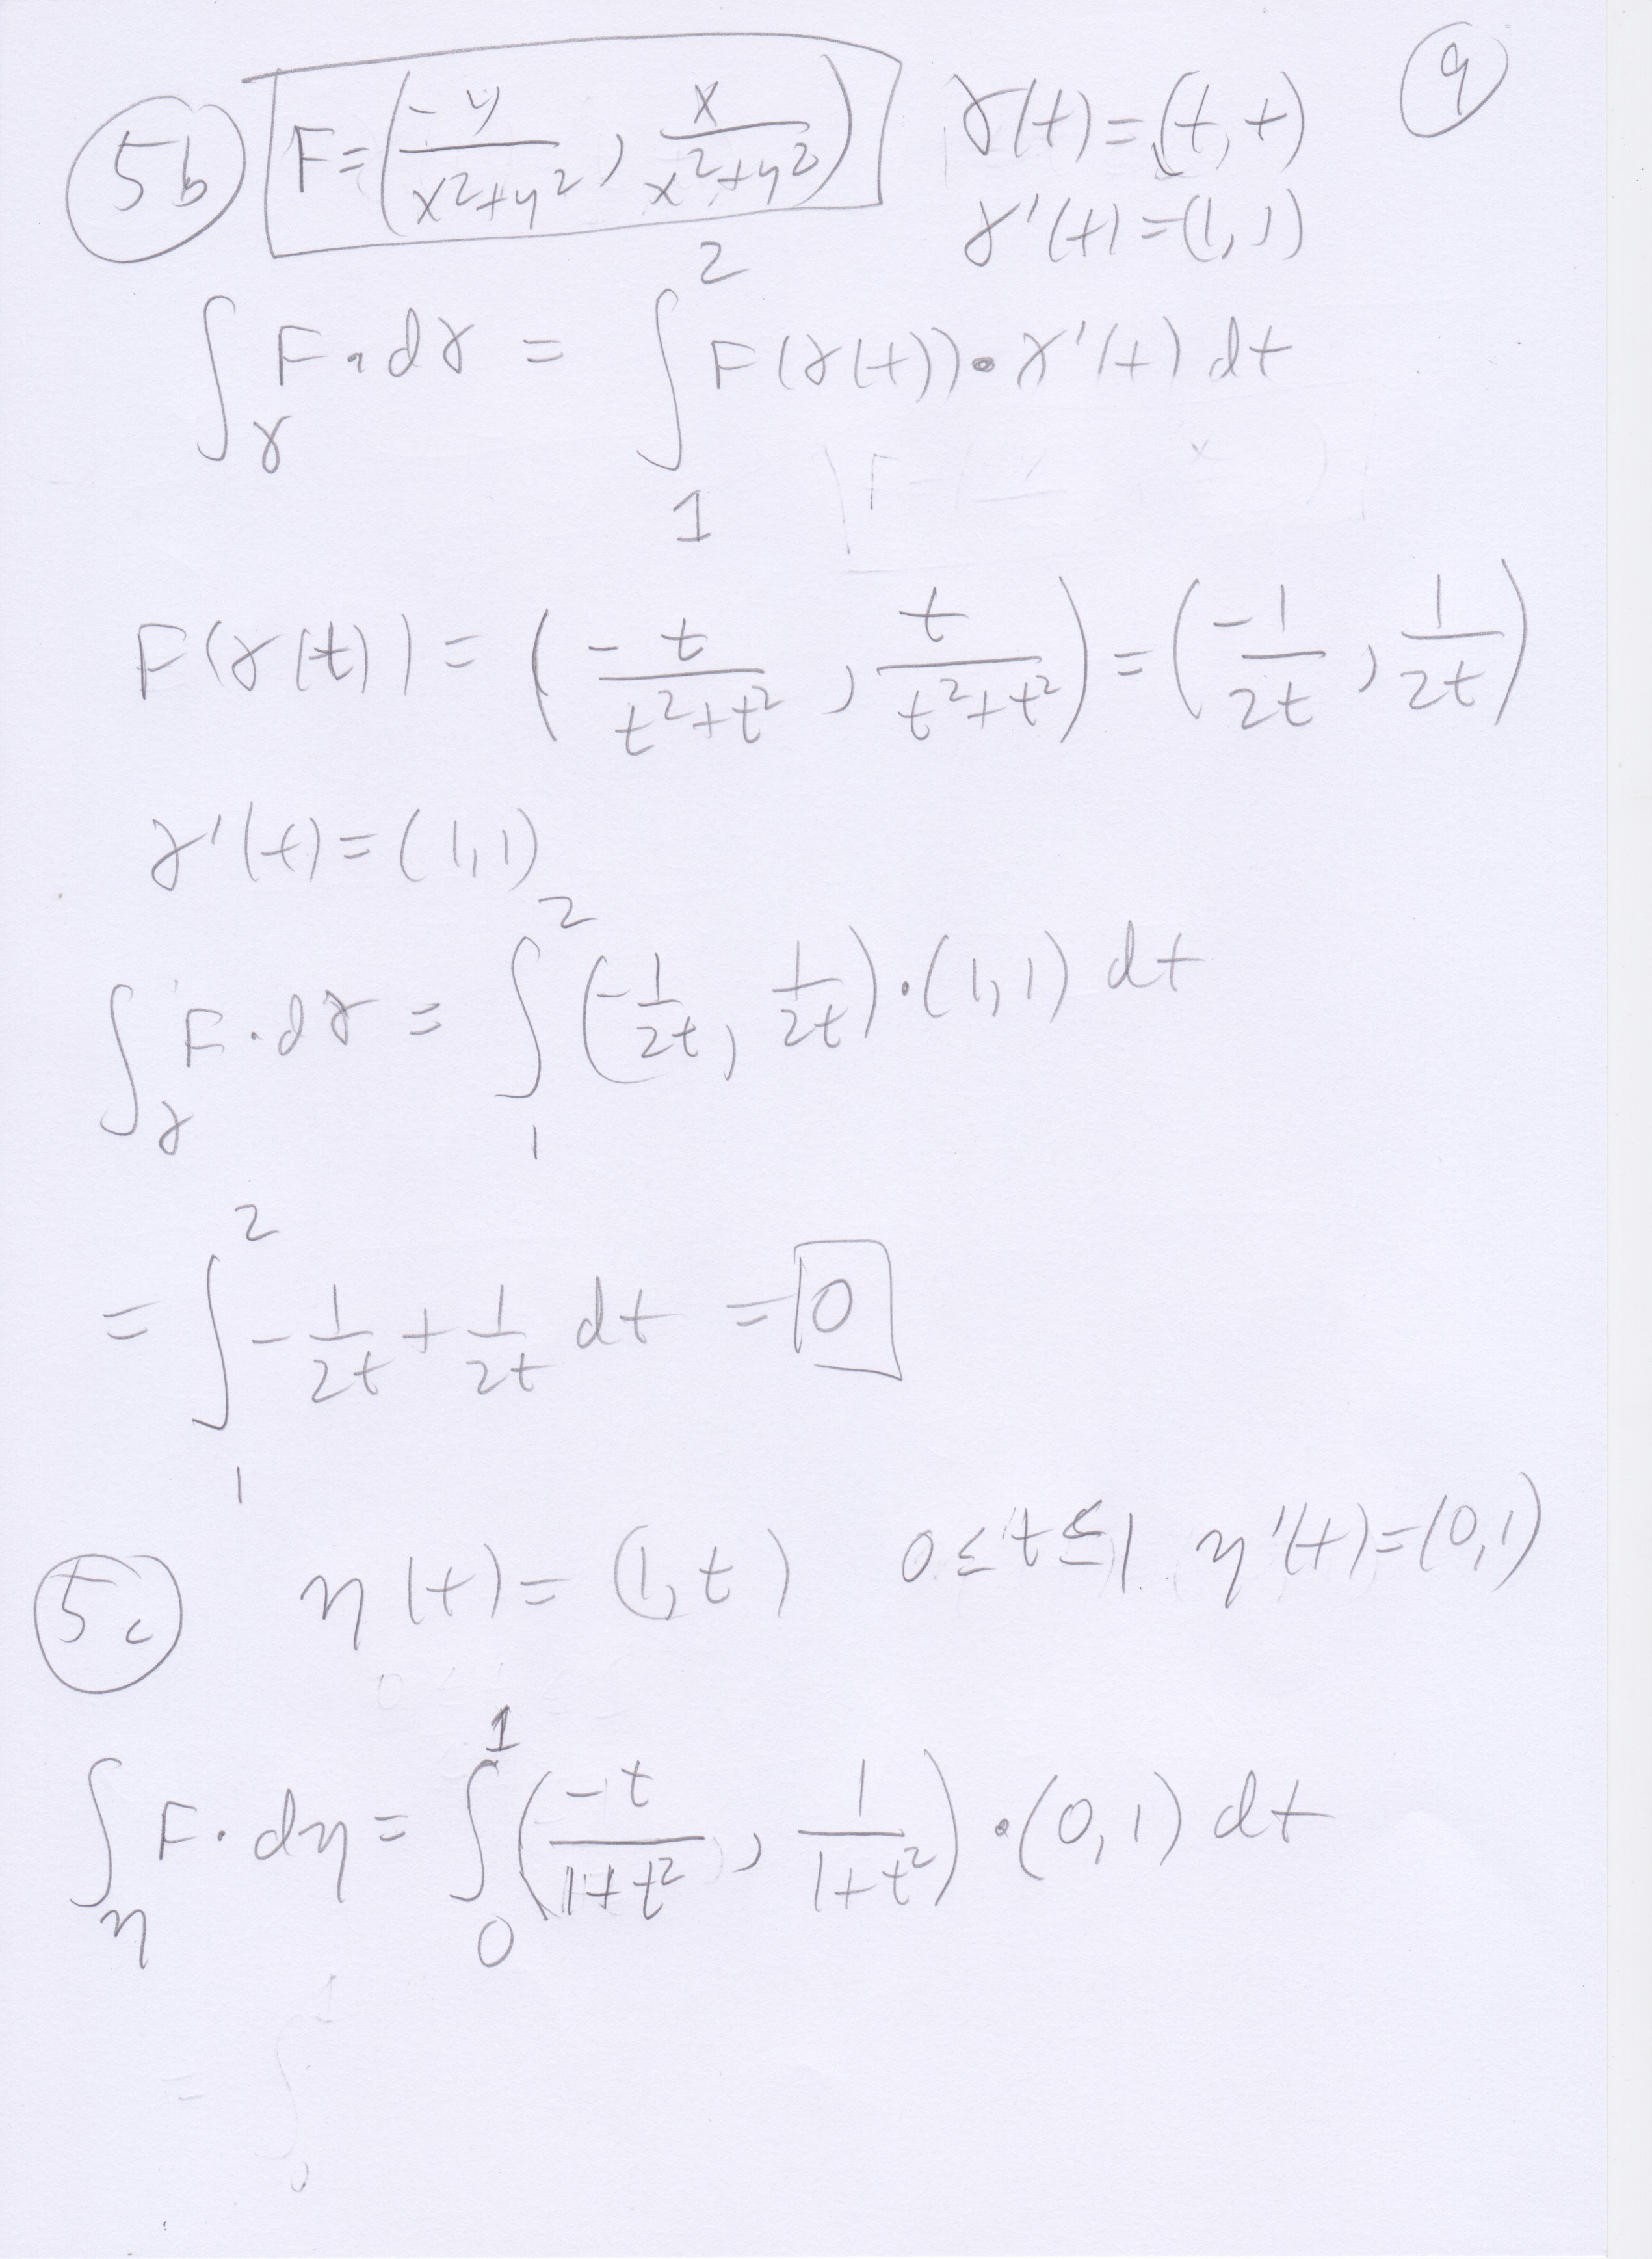 9
5b F = (-y/(x²+y²), x/(x²+y²)) γ(t) = (t, t)
γ'(t) = (1, 1)
∫_γ F · dγ = ∫_1^2 F(γ(t)) · γ'(t) dt
F(γ(t)) = (-t/(t²+t²), t/(t²+t²)) = (-1/2t, 1/2t)
γ'(t) = (1, 1)
∫_γ F · dγ = ∫_1^2 (-1/2t, 1/2t) · (1, 1) dt
= ∫_1^2 -1/2t + 1/2t dt = 0
5c η(t) = (1, t) 0 ≤ t ≤ 1 η'(t) = (0, 1)
∫_η F · dη = ∫_0^1 (-t/(1+t²), 1/(1+t²)) · (0, 1) dt